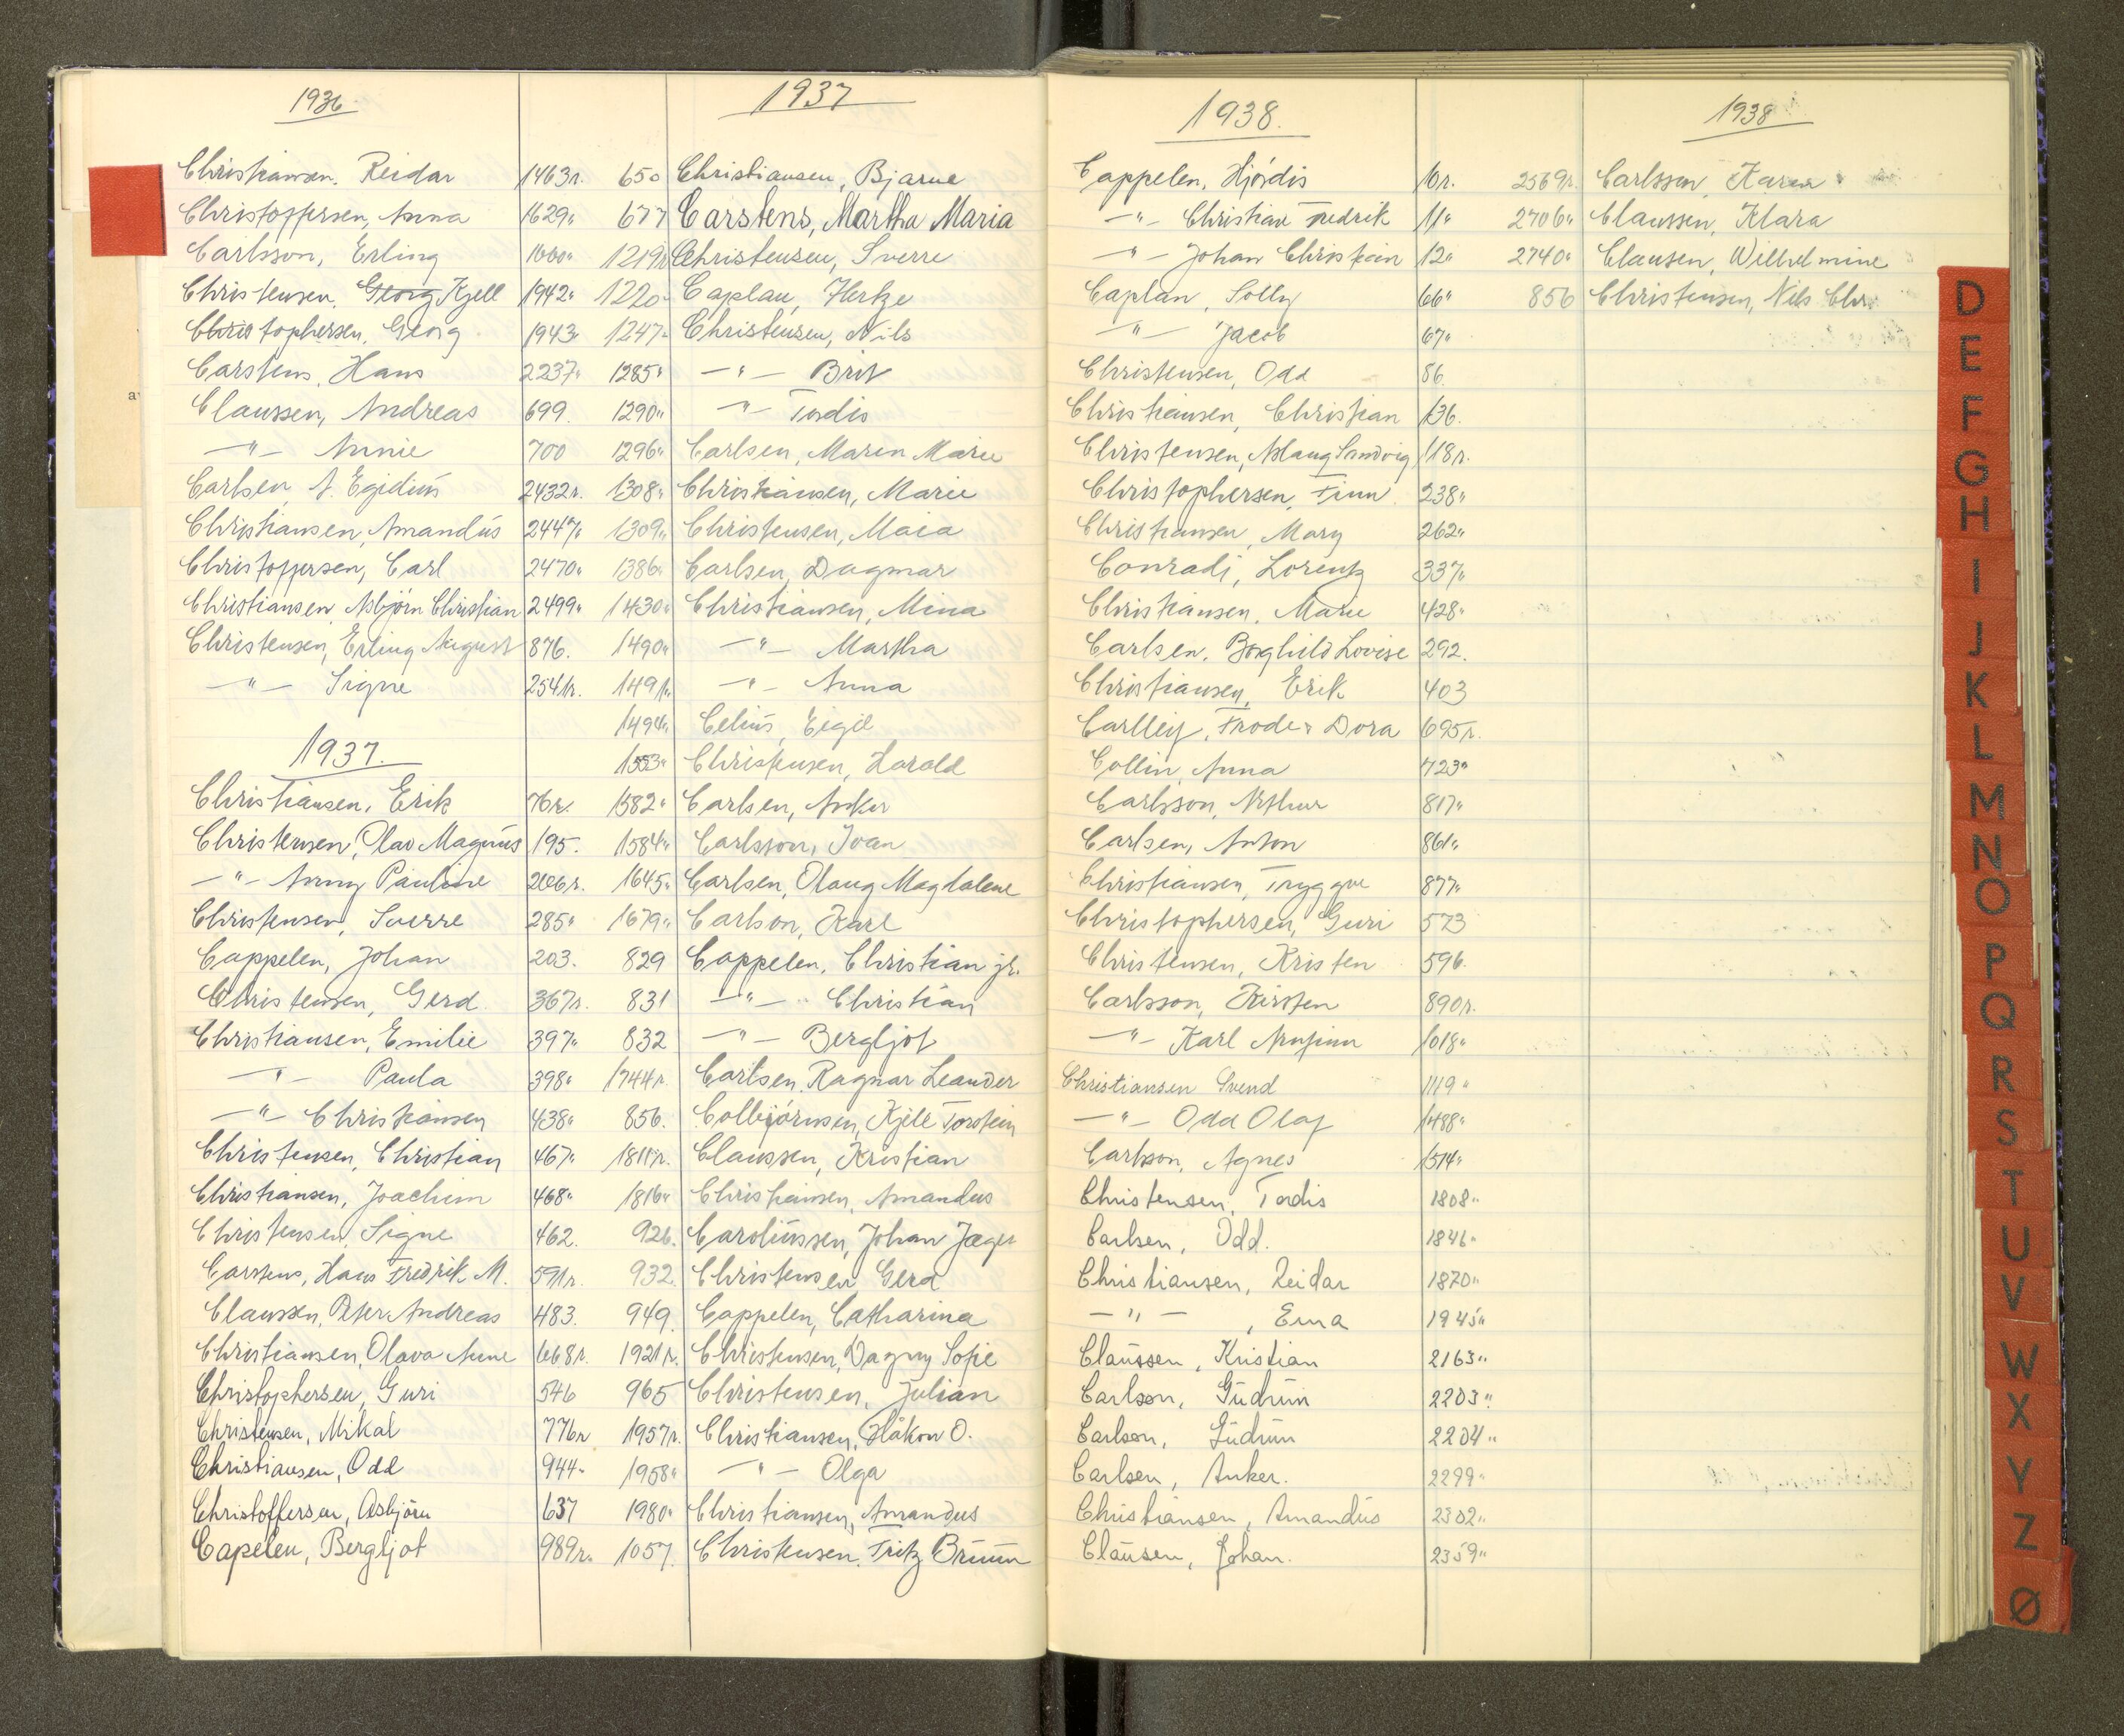 1936
Christiansen, Reidar 1463r.
Christoffersen, Anna 1629"
Carlsson, Erling
Christensen, Georg Kjell 1942"
Christophersen, Georg 1943"
Carstens, Hans 2237"
Claussen, Andreas 699
—"— Annie 700
Carlsen, A. Egidius 2432r.
Christiansen, Amandus 2447"
Christoffersen, Carl 2470"
Christiansen, Asbjörn Christian 2499"
Christensen, Erling August 876.
—"— Signe 2541r.
1937.
Christiansen, Erik 76r.
Christensen, Olav Magnus 195.
—"— Anny Pauline 206r.
Christensen, Sverre 285"
Cappelen, Johan 203.
Christensen, Gerd 367r.
Christiansen, Emilie 397"
—"— Paula 398"
—"— Christiansen 438"
Christensen, Christian 467"
Christiansen, Joachim 468"
Christensen, Signe 462.
Carstens, Hans Fredrik M. 591r.
Claussen, Peter Andreas 483.
Christiansen, Olava Anne 668r.
Christophersen, Guri 546
Christensen, Mikal 776r
Christiansen, Odd 944"
Christoffersen, Asbjörn 637
Capelen, Bergljot 989r.
1937
650 Christiansen, Bjarne
677 Carstens, Martha Maria
1219r Christensen, Sverre
1220" Caplan, Hertze
1247" Christensen, Nils
1285" —"— Brit
1290" —"— Tordis
1296" Carlsen, Maren Marie
1308" Christiansen, Marie
1309" Christensen, Maia
1386" Carlsen, Dagmar
1430" Christiansen, Mina
1490" —"— Martha
1491" —"— Anna
1494" Celius, Eigil
1553" Christensen, Harald
1582" Carlsen, Anker
1584" Carlsson, Ivan
1645" Carlsen, Olaug Magdalene
1679" Carlson, Karl
829 Cappelen, Christian jr.
831 —"— Christian
832 —"— Bergljot
1744r. Carlsen, Ragnar Leander
856. Colbjörnsen, Kjell Torstein
1811r. Claussen, Kristian
1816" Christiansen, Amandus
926. Caroliussen, Johan Jæger
932. Christensen, Gerd
949. Cappelen, Catharina
1921r. Christensen, Dagny Sofie
965 Christensen, Julian
1957r. Christiansen, Håkon O.
1958" —"— Olga
1980" Christiansen, Amandus
1057. Christensen, Fritz Bruun
1938.
Cappelen, Hjördis 10r.
—"— Christian Fredrik 11"
—"— Johan Christian 12"
Caplan, Solly 66"
—"— Jacob 67"
Christensen, Odd 86.
Christiansen, Christian 136.
Christensen, Aslaug Sandvig 118r.
Christophersen, Finn 238"
Christiansen, Mary 262"
Conradi, Lorentz 337"
Christiansen, Marie 428"
Carlsen, Borghild Lovise 292.
Christiansen, Erik 403
Frode & Dora 695r.
Collin, Anna 723"
Carlsson, Arthur 817"
Carlsen, Anton 861"
Christiansen, Tryggve 877"
Christophersen, Guri 573
Christensen, Kristen 596.
Carlsson, Kirsten 890r.
—"— Karl Arnfinn 1018"
Christiansen Svend 1119"
—"— Odd Olaf 1488"
Carlson, Agnes 1514"
Christensen, Tordis 1808"
Carlsen, Odd. 1846"
Christiansen, Reidar 1870"
—"—, Erna 1945"
Claussen, Kristian 2163"
Carlson, Gudrun 2203"
Carlson, Gudrun 2204"
Carlsen, Anker. 2299"
Christiansen, Amandus 2302"
Clausen, Johan. 2359"
1938
2569r. Carlssen, Karen
2706" Claussen, Klara
2740" Clausen, Wilhelmine
856 Christensen, Nils Chr.
D
E
F
G
H
I
J
K
L
M
N
O
P
Q
R
S
T
U
V
W
X
Y
Z
Ø